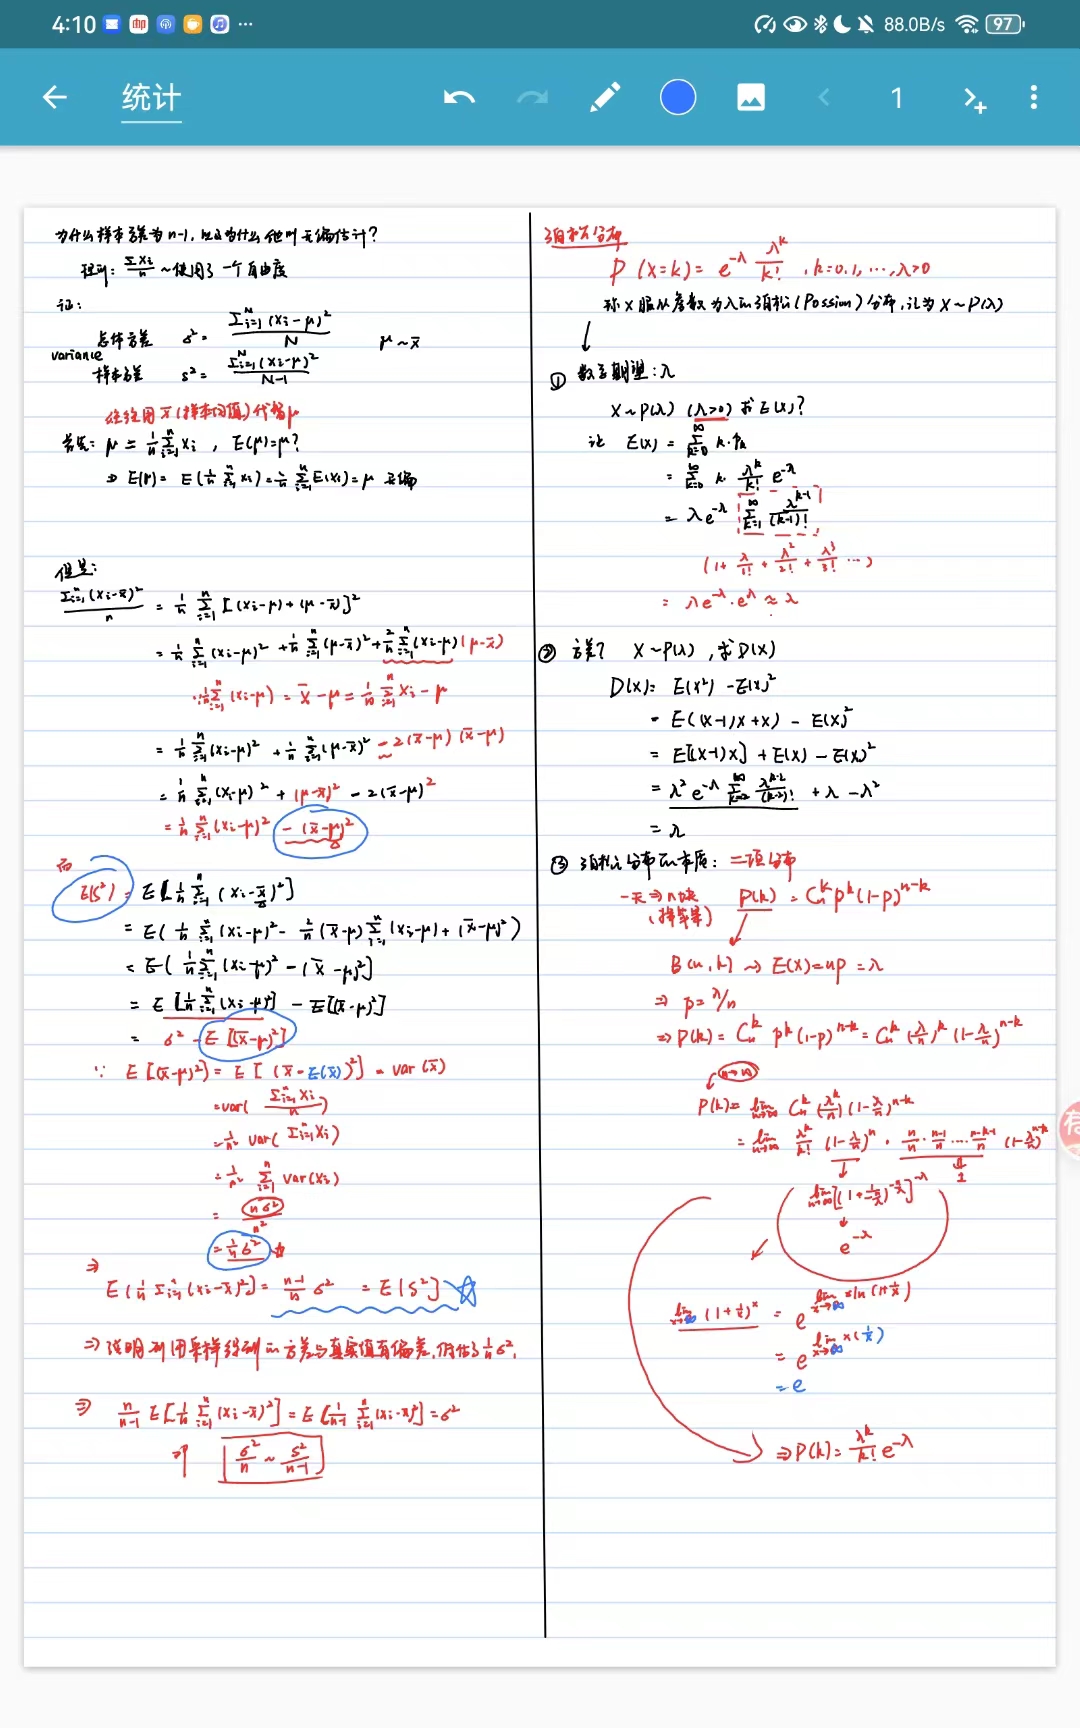 4:10
88.0B/s
97
统计
1
为什么样本方差为n-1,以及为什么他叫无偏估计?
Σxi/n ~使用了一个自由度
证:
总体方差 σ² = Σᵢ₌₁ᴺ(xi-μ)²/N μ~x̄
variance
样本方差 s² = Σᵢ₌₁ᴺ(xi-μ)²/N-1
往往用x̄(样本均值)代替μ
首先: μ = 1/n Σᵢ₌₁ⁿ xi , E(μ)=μ?
⇒ E(μ) = E(1/n Σᵢ₌₁ⁿ xi) = 1/n Σᵢ₌₁ⁿ E(xi) = μ 无偏
但是:
Σᵢ₌₁ⁿ(xi-x̄)²/n = 1/n Σᵢ₌₁ⁿ[(xi-μ)+(μ-x̄)]²
= 1/n Σᵢ₌₁ⁿ(xi-μ)² + 1/n Σᵢ₌₁ⁿ(μ-x̄)² + 2/n Σᵢ₌₁ⁿ(xi-μ)(μ-x̄)
∵ 1/n Σᵢ₌₁ⁿ(xi-μ) = x̄-μ = 1/n Σᵢ₌₁ⁿ xi - μ
= 1/n Σᵢ₌₁ⁿ(xi-μ)² + 1/n Σᵢ₌₁ⁿ(μ-x̄)² - 2(x̄-μ)(x̄-μ)
= 1/n Σᵢ₌₁ⁿ(xi-μ)² + (μ-x̄)² - 2(x̄-μ)²
= 1/n Σᵢ₌₁ⁿ(xi-μ)² - (x̄-μ)²
而
E(s²) = E[1/n Σᵢ₌₁ⁿ(xi-x̄)²]
= E(1/n Σᵢ₌₁ⁿ(xi-μ)² - 2/n(x̄-μ)Σᵢ₌₁ⁿ(xi-μ)+(x̄-μ)²)
= E(1/n Σᵢ₌₁ⁿ(xi-μ)² - (x̄-μ)²]
= E[1/n Σᵢ₌₁ⁿ(xi-μ)²] - E[(x̄-μ)²]
= σ² - E[(x̄-μ)²]
∵ E[(x̄-μ)²) = E[(x̄-E(x̄))²] = var(x̄)
= var(Σᵢ₌₁ⁿxi/n)
= 1/n² var(Σᵢ₌₁ⁿxi)
= 1/n² Σᵢ₌₁ⁿ var(xi)
= nσ²/n²
= 1/n σ²
⇒
E(1/n Σᵢ₌₁ⁿ(xi-x̄)²] = n-1/n σ² = E[s²] ☆
⇒ 说明利用采样得到的方差与真实值有偏差,1/n σ².
⇒ n/n-1 E[1/n Σᵢ₌₁ⁿ(xi-x̄)²] = E[1/n-1 Σᵢ₌₁ⁿ(xi-x̄)²] = σ²
σ²/n ~ s²/n-1
泊松分布
P(X=k) = e^-λ λ^k/k! , k=0.1,⋯,λ>0
称X服从参数为λ的泊松(Possion)分布,记为X~P(λ)
① 数学期望:λ
X~P(λ) (λ>0) 求E(X)?
E(X) = Σₖ₌₀^∞ k·Pk
= Σₖ₌₀^∞ k·λ^k/k! e^-λ
= λe^-λ Σₖ₌₁^∞ λ^k-1/(k-1)!
(1+λ/1!+λ²/2!+λ³/3!⋯)
= λe^-λ·e^λ ≈ λ
② 方差? X~P(λ),求D(X)
D(X) = E(X²) - E(X)²
= E((X-1)X+X) - E(X)²
= E[(X-1)X] + E(X) - E(X)²
= λ²e^-λ Σₖ₌₂^∞ λ^k-2/(k-2)! + λ - λ²
= λ
③ 泊松分布的本质:二项分布
一天⇒n块 P(k) = Cₙᵏ p^k(1-p)^n-k
B(n,k) ~> E(X)=np=λ
⇒ p=λ/n
⇒ P(k) = Cₙᵏ p^k(1-p)^n-k = Cₙᵏ(λ/n)^k(1-λ/n)^n-k
n→∞
P(k) = lim n→∞ Cₙᵏ(λ^k/n)(1-λ/n)^n-k
= lim n→∞ λ^k/k! (1-λ/n)^n · n/n·n-1/n⋯n-k-1/n (1-λ/n)^-k
1
lim n→∞[(1+1/-n/λ)^-n/λ]^-λ
e^-λ
lim x→∞ (1+1/x)^x = e^lim x→∞ xln(1+1/x)
= e^lim x→∞ x(1/x)
= e
⇒P(k) = λ^k/k! e^-λ